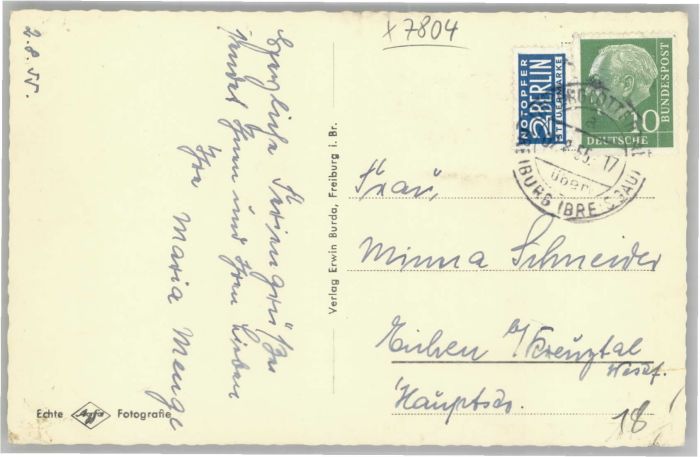 2.8.55.
Herzliche Feriengrüße
sendet Ihnen und Ihren Lieben
Ihre Maria Menge
x 7804
NOTOPFER
2 BERLIN
STEUERMARKE
DEUTSCHE
BUNDESPOST
über
FREIBURG (BREISGAU)
Verlag Erwin Burda, Freiburg i. Br.
Frau,
Minna Schneider
Eichen b/Kreuztal
Westf.
Hauptstr.
18
Echte Agfa Fotografie